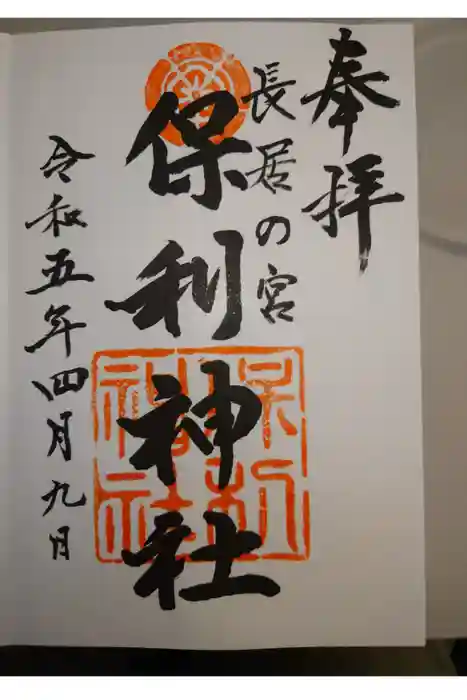 奉拝
長居の宮
保利神社
保利神社
令和五年四月九日